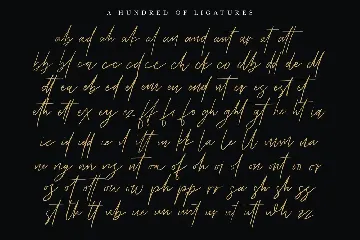 A HUNDRED OF LIGATURES
ab ad ah ak al an and ant as at att
bb bl ca cc cd ce ch ck co db dd de dl
dt ea eb ed el em en end nt er es est et
eth ett ex ey ez ff fl fo gh ght gt he ht ia
ic id idd ie il itt in kk la le ll mm na
ne ng nn ns nt oa of oh oi ol on ont oo or
os ot ott ou ow ph pp rr sa sh sh ss
st th tt ub ue un unt us ut utt wh zz